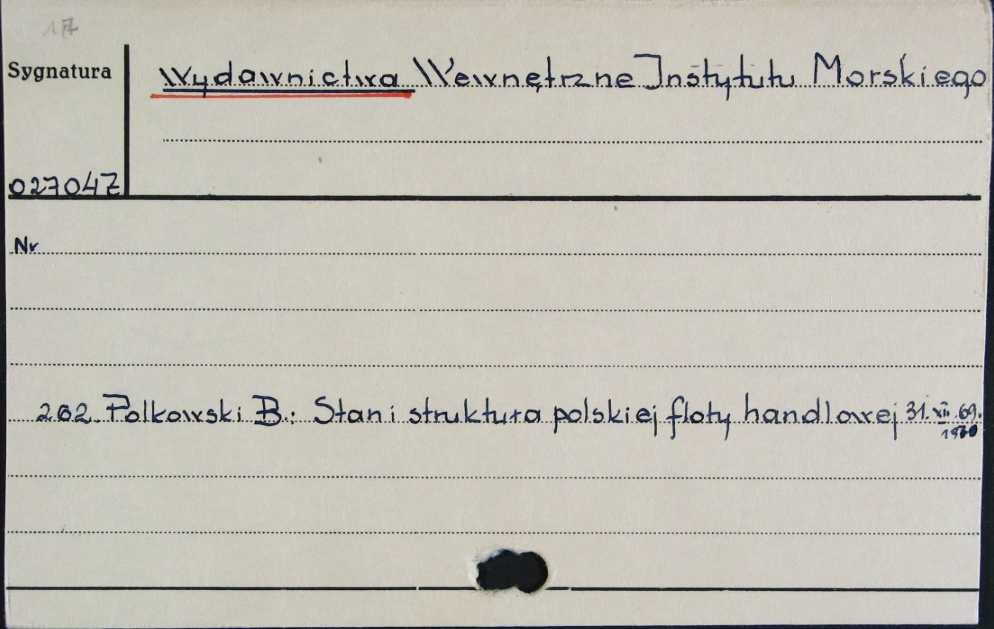 17
Sygnatura
Wydawnictwa Wewnętrzne Instytutu Morskiego
027047
Nr
202. Polkowski B.: Stan i struktura polskiej floty handlowej 31.XII.69.
1970